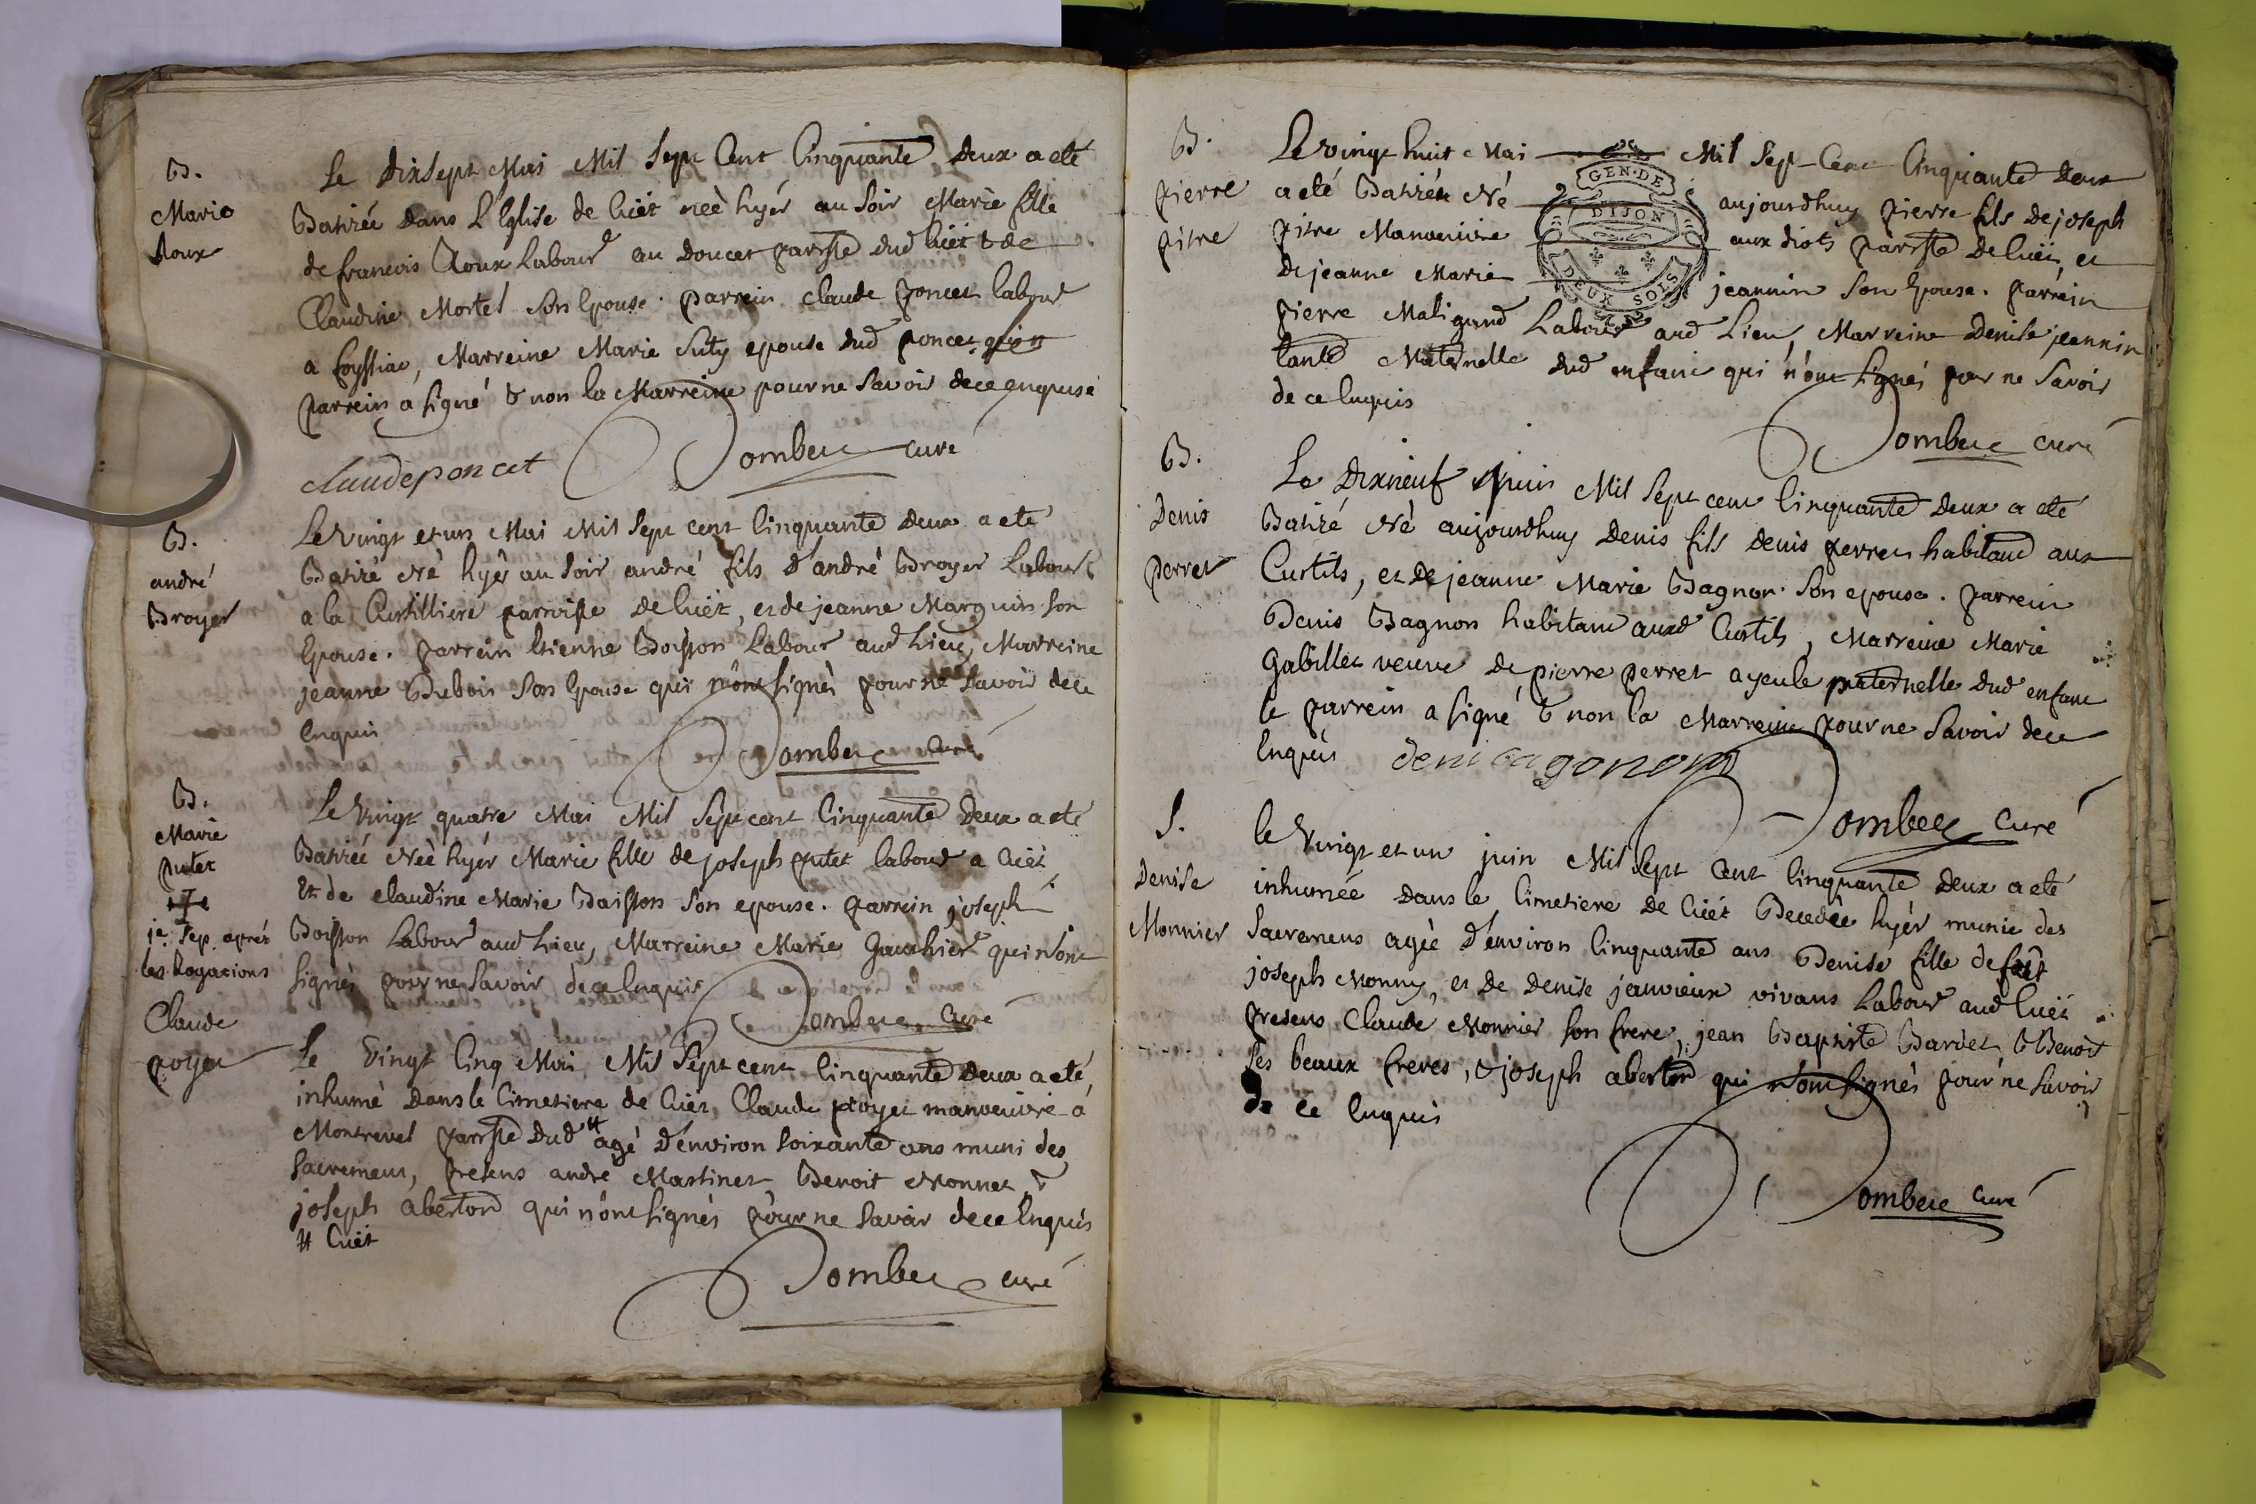 B.
Marie
Roux
Le dixsept Mai Mil Sept Cent Cinquante deux a eté
Batizée dans L'Eglise de Cuët neè hyér au Soir Marie fille
de francois Roux Labour au doucet parrsse dud Cuët & de
Claudine Mortel Son Epouse. parrein claude poncet labour
a foyssiac, Marreine Marie Suty epouse dud poncet
parrein a signé & non la Marreine pour ne Savoir de ce enquise
claude poncet
Dombey curé
B.
andré
Broyer
Le Vingt et un Mai Mil Sept cent Cinquante deux a eté
Batizé Né hyér au Soir andré fils d'andré Broyer Labour
a la Curtilliere parroisse de Cuët, et de jeanne Marguin Son
Epouse. parrein Etienne Boisson Labour aud Lieu, Marreine
jeanne Dubois Son Epouse qui n'ont signés pour ne Savoir de ce
Enquis
Dombey curé
B.
Marie
putet
Le Vingt quatre Mai Mil Sept cent Cinquante deux a eté
Batizée Neè hyér Marie fille de joseph putet labour a Cuët
Et de claudine Marie Boisson Son epouse. parrein joseph
Boisson Labour aud Lieu, Marreine Marie Gauthier qui n'ont
signés pour ne Savoir de ce Enquis
Dombey curé
je Sep. aprés
les Rogations
Claude
poyet
Le Vingt Cinq Mai Mil Sept cent Cinquante deux a eté
inhumé dans le Cimetiere de Cuët, Claude poyet manoeuvre a
Montrevel parrsse dud # agé d'environ Soixante ans muni des
Sacremens, presens andré Martinet Benoit Monnet &
joseph aberton qui n'ont signés pour ne Savoir de ce Enquis
# Cuët
Dombey curé
B.
pierre
pitre
GEN. DE
DIJON
DEUX SOLS
Le vingt huit Mai Mil Sept Cent Cinquante deux
a eté Batizé Né aujourdhuy pierre fils de joseph
pitre Manoeuvre aux diots parrsse de Cuët, et
de jeanne Marie jeannin Son Epouse. parrein
pierre Maligand Labour aud Lieu, Marreine Denise jeannin
tante Maternelle dud enfant qui n'ont signés pour ne Savoir
de ce Enquis
Dombey curé
B.
Denis
perret
Le Dixneuf juin Mil Sept cent Cinquante deux a eté
Batizé Né aujourdhuy Denis fils denis perret habitant aux
Curtils, et de jeanne Marie Bagnon Son epouse. parrein
Denis Bagnon habitant auxd Curtils, Marreine Marie
Gabillet veuve de pierre perret ayeule paternelle dud enfant
le parrein a signé & non la Marreine pour ne Savoir de ce
Enquis
Dombey curé
S.
Denise
Monnier
le Vingt et un juin Mil Sept Cent Cinquante deux a eté
inhumée dans le Cimetiere de Cuët Decedée hyér munie des
Sacremens agée d'environ Cinquante ans Denise fille de
joseph Monny, et de Denise janvieux vivans Labour aud Cuët
presens Claude Monnier Son frere, jean Baptiste Bardet & Benoit
Ses beaux freres, & joseph aberton qui n'ont signés pour ne Savoir
de ce Enquis
Dombey curé